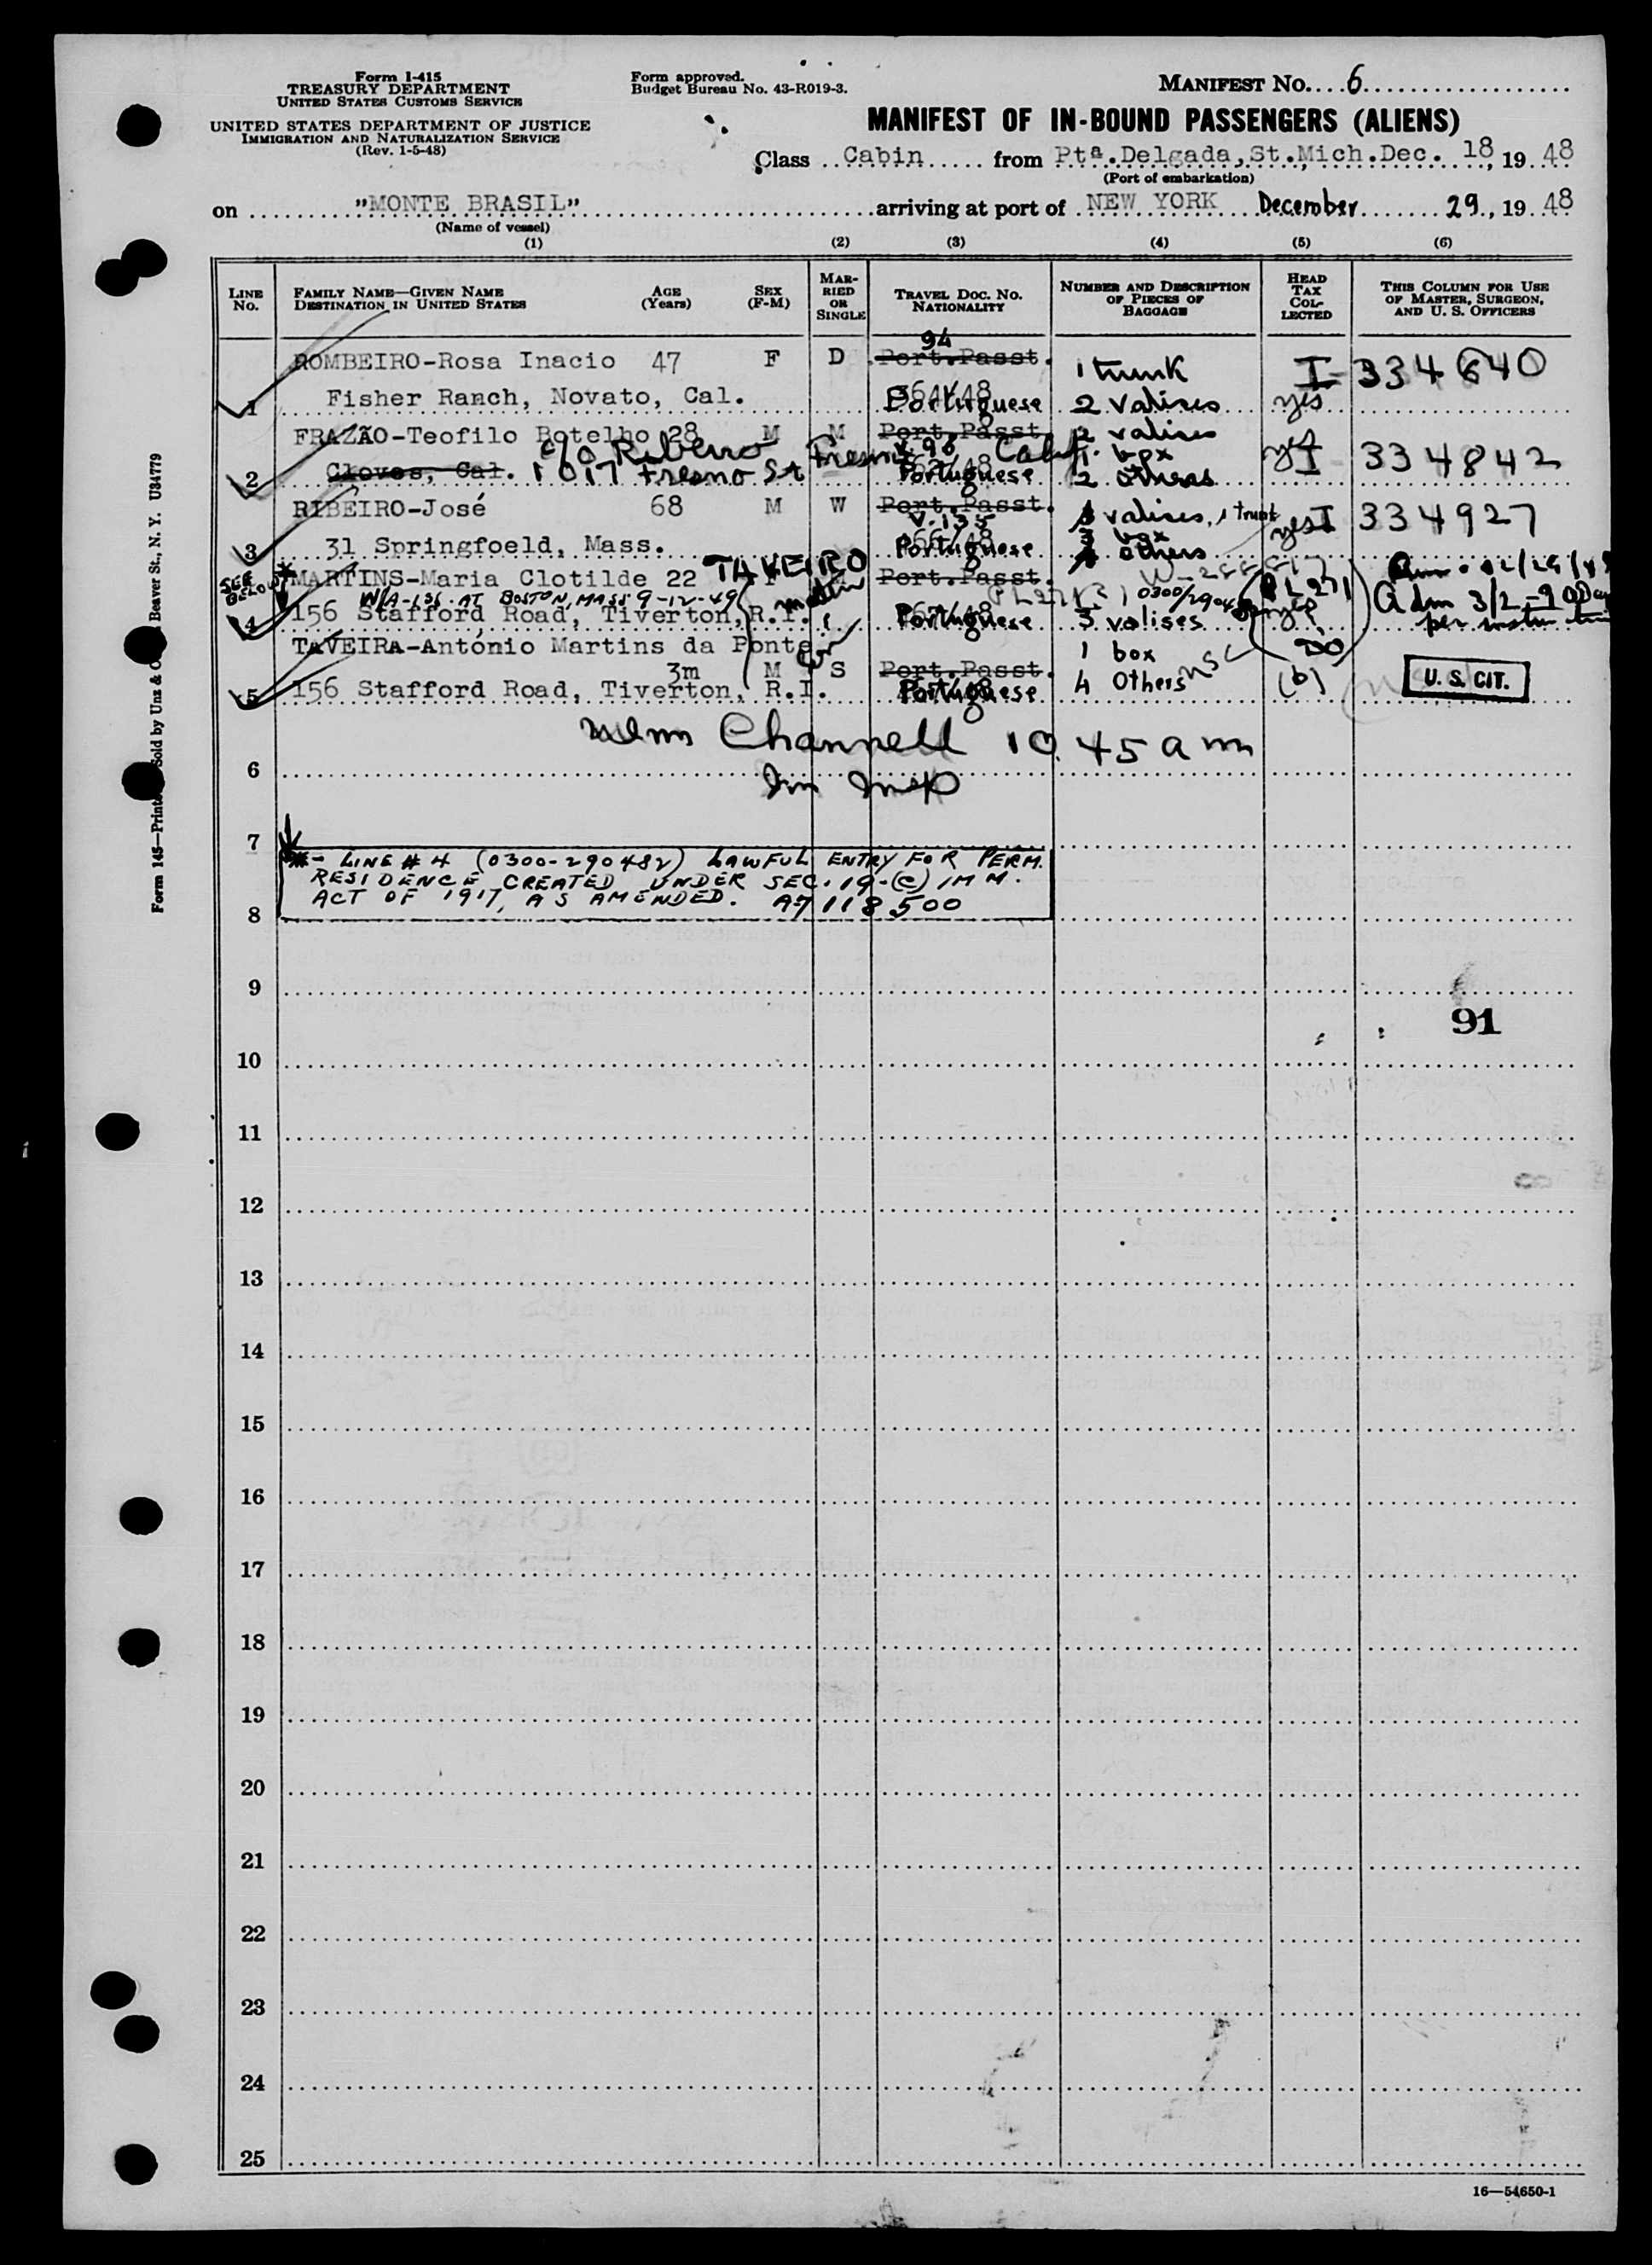 Form I-415
TREASURY DEPARTMENT
UNITED STATES CUSTOMS SERVICE
UNITED STATES DEPARTMENT OF JUSTICE
IMMIGRATION AND NATURALIZATION SERVICE
(Rev. 1-5-48)
Form approved.
Budget Bureau No. 43-R019-3.
MANIFEST No. 6
MANIFEST OF IN-BOUND PASSENGERS (ALIENS)
Class Cabin from Ptª. Delgada, St. Mich. Dec. 18, 19 48
(Port of embarkation)
on "MONTE BRASIL" arriving at port of NEW YORK December 29, 19 48
(Name of vessel)
(1) (2) (3) (4) (5) (6)
LINE No. FAMILY NAME—GIVEN NAME DESTINATION IN UNITED STATES AGE (Years) SEX (F-M) MARRIED OR SINGLE TRAVEL DOC. No. NATIONALITY NUMBER AND DESCRIPTION OF PIECES OF BAGGAGE HEAD TAX COLLECTED THIS COLUMN FOR USE OF MASTER, SURGEON, AND U. S. OFFICERS
94
ROMBEIRO-Rosa Inacio 47 F D Port. Passt. 1 trunk I-334640
1 Fisher Ranch, Novato, Cal. Portuguese 2 valises yes
FRAZÃO-Teofilo Botelho 28 M M Port. Passt. 2 valises
c/o Ribeiro Fresno Calif. V. 98 1 box
2 Cloves, Cal. 1017 Fresno St Portuguese 2 others yes I 334842
RIBEIRO-José 68 M W Port. Passt. valises, 1 trunk yes I 334927
V. 135 3 box
3 31 Springfoeld, Mass. Portuguese others
SEE BELOW
MARTINS-Maria Clotilde 22 TAVEIRO Port. Passt. PL 271
W/A-136 AT BOSTON, MASS 9-12-49
4 156 Stafford Road, Tiverton, R.I. Portuguese 3 valises yes Adm 3/2
TAVEIRA-António Martins da Ponte 1 box DO
3m M S Port. Passt.
5 156 Stafford Road, Tiverton, R.I. Portuguese 4 Others (b) U. S. CIT.
Channell 10.45 am
6
7
*- LINE # 4 (0300-290482) LAWFUL ENTRY FOR PERM.
RESIDENCE CREATED UNDER SEC. 19-(c) IMM.
ACT OF 1917, AS AMENDED. A7 118 500
8
9
91
10
11
12
13
14
15
16
17
18
19
20
21
22
23
24
25
16—54650-1
Beaver St., N. Y. U34779